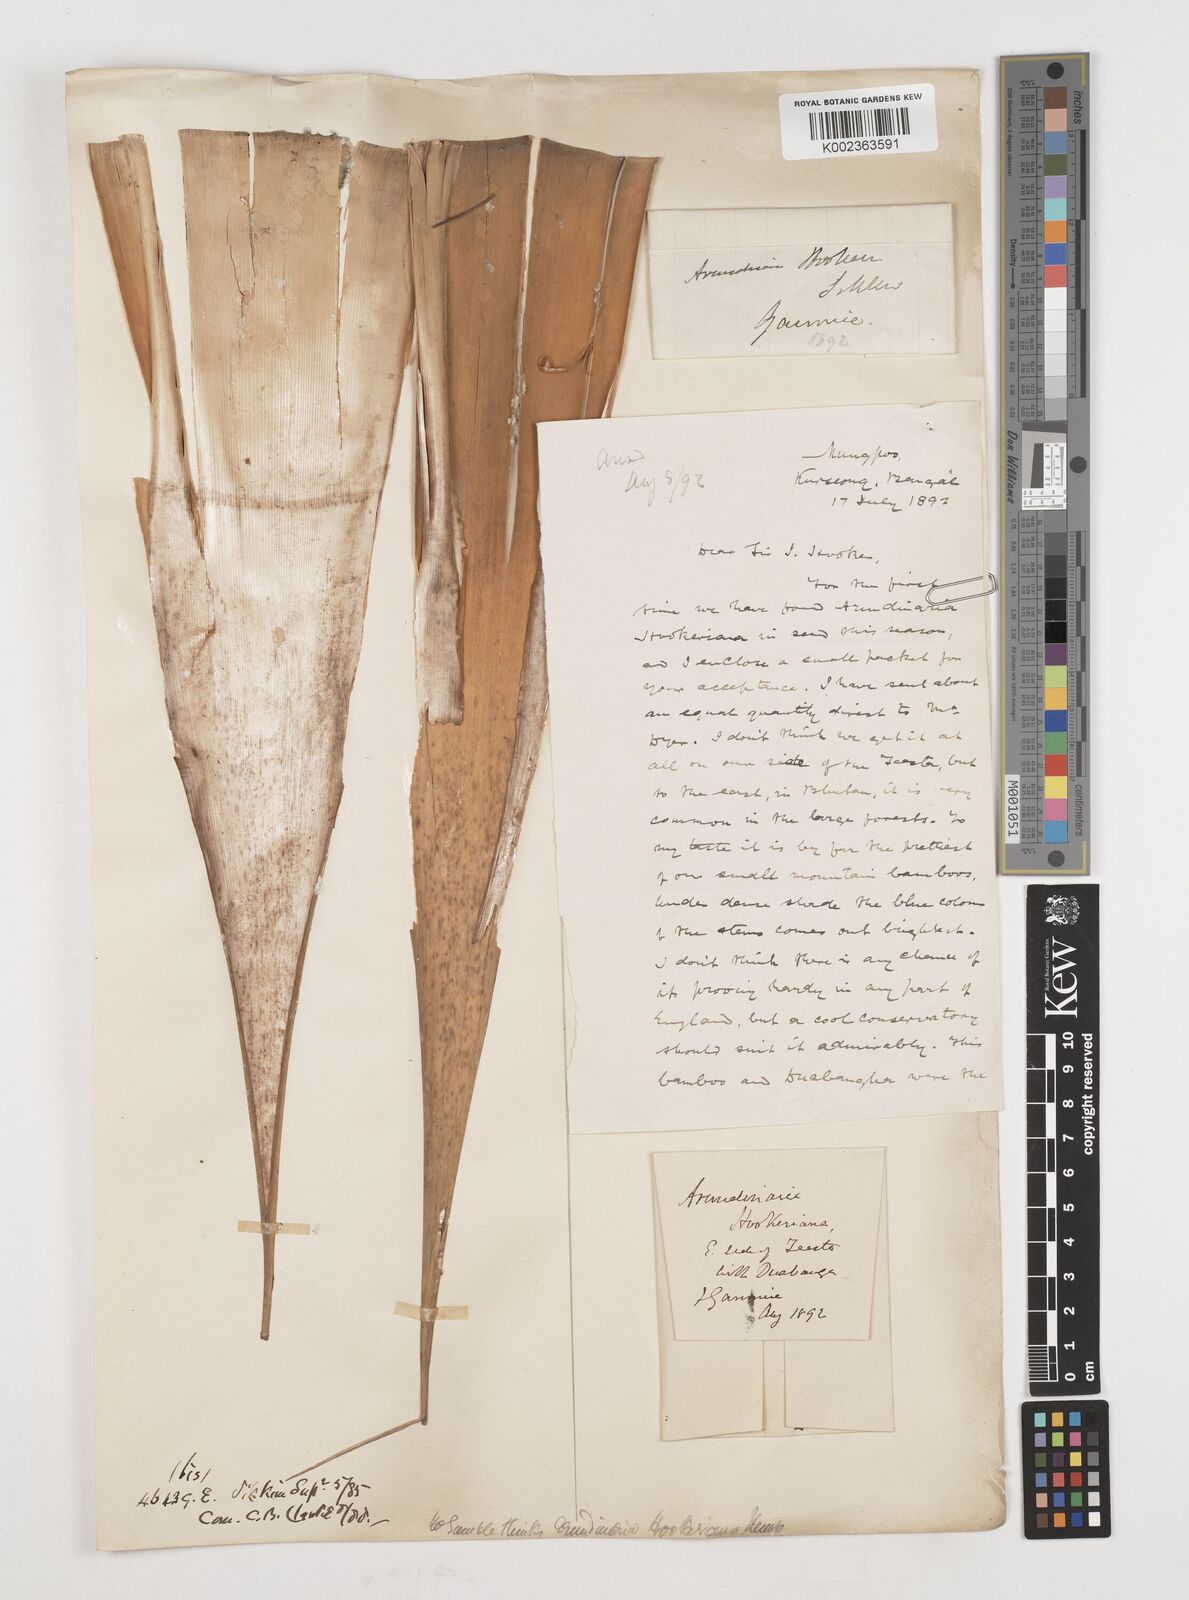 ROYAL BOTANIC GARDENS KEW
K002363591
Arundinaria Hookeri
Sikkim
Gammie.
1892
Ansd
Aug 5/92
Mungpoo,
Kurseong, Bengal
17 July 1892
Dear Sir J. Hooker,
For the first
time we have found Arundinaria
Hookeriana in seed this season,
and I enclose a small packet for
your acceptance. I have sent about
an equal quantity direct to Mr
Dyer. I don't think we get it at
all on our side of the Teesta, but
to the east, in Bhutan, it is very
common in the large forests. To
my taste it is by far the prettiest
of our small mountain bamboos.
Under dense shade the blue colour
of the stems comes out brightest.
I don't think there is any chance of
its proving hardy in any part of
England, but a cool conservatory
should suit it admirably. This
bamboo and Duabanga were the
Arundinaria
Hookeriana,
E. side of Teesta
with Duabanga
J Gammie
Aug 1892
(bis)
4643 G. E. Sikkim Supr 5/85
Com. C.B. Clarke
Gamble thinks Arundinaria Hookeriana Munro
inches
centimeters
Density
Don Williams
M001051
Royal Botanic Gardens
Kew
0 1 2 3 4 5 6 7 8 9 10
cm
copyright reserved